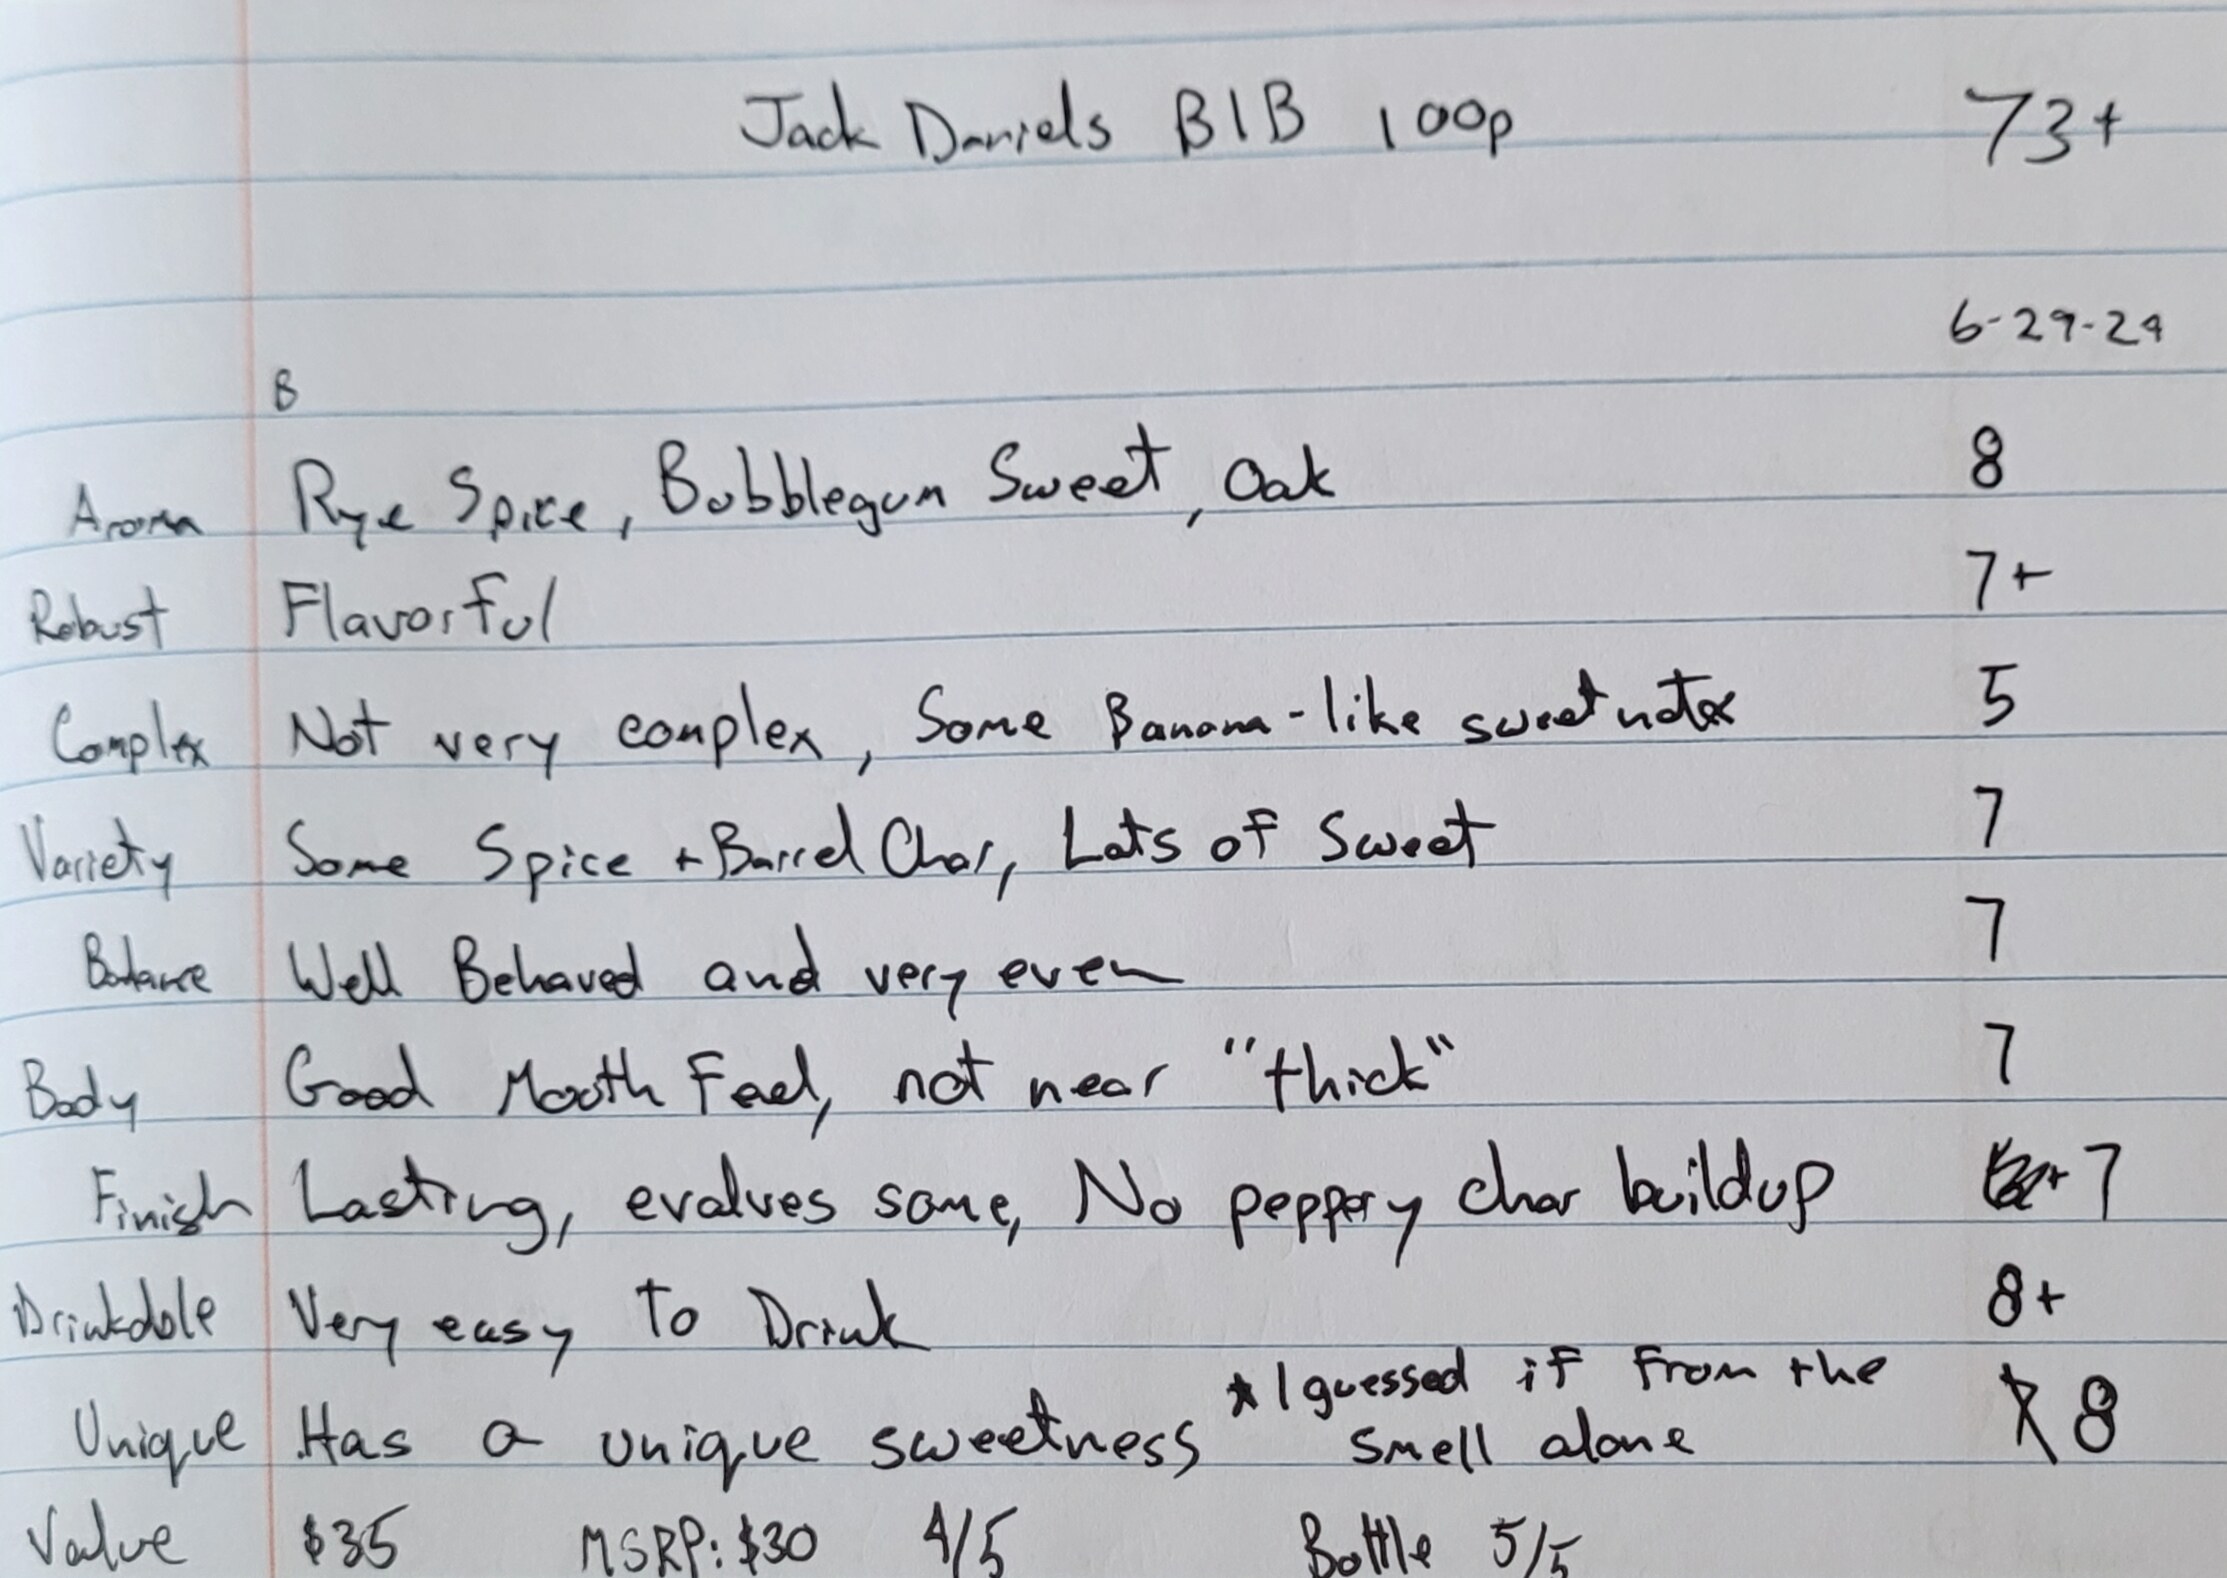 Jack Daniels BIB 100p 73+
6-29-24
B
Aroma Rye Spice, Bubblegum Sweet, Oak 8
Robust Flavorful 7+
Complex Not very complex, Some Banana-like sweet notes 5
Variety Some Spice + Barrel Char, Lots of Sweet 7
Balance Well Behaved and very even 7
Body Good Mouth Feel, not near "thick" 7
Finish Lasting, evolves some, No peppery char buildup 7
Drinkable Very easy To Drink 8+
* I guessed if From the
Unique Has a unique sweetness smell alone 8
Value $35 MSRP: $30 4/5 Bottle 5/5